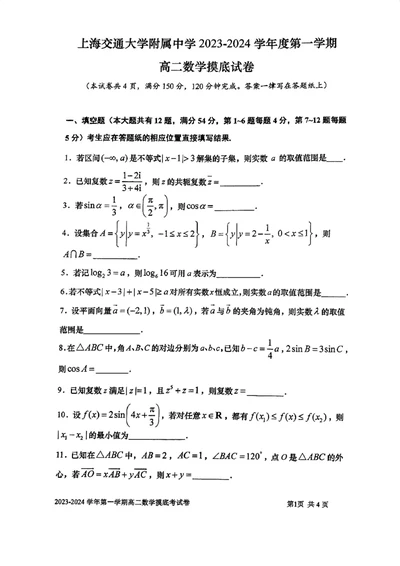 上海交通大学附属中学 2023-2024 学年度第一学期
高二数学摸底试卷
(本试卷共 4 页，满分 150 分，120 分钟完成。答案一律写在答题纸上)
一、填空题（本大题共有 12 题，满分 54 分，第 1~6 题每题 4 分，第 7~12 题每题
5 分）考生应在答题纸的相应位置直接填写结果.
1．若区间(-∞, a) 是不等式| x-1|> 3 解集的子集，则实数 a 的取值范围是____.
2．已知复数 z = (1-2i)/(3+4i)，则 z 的共轭复数 z̄ = ________.
3．若 sin α = 1/3，α∈(π/2, π)，则 cos α = ________.
4．设集合 A = {y | y = x^(1/3), -1 ≤ x ≤ 2}，B = {y | y = 2 - 1/x, 0 < x ≤ 1}，则
A∩B = ________.
5．若记 log₂ 3 = a，则 log₆ 16 可用 a 表示为________.
6.若不等式| x-3|+| x-5|≥ a 对所有实数 x 恒成立,则实数 a 的取值范围是______.
7．设平面向量 a⃗ = (-2, 1)，b⃗ = (1, λ)，若 a⃗ 与 b⃗ 的夹角为钝角，则实数 λ 的取值
范围是________.
8.在△ABC 中,角 A、B、C 的对边分别为 a、b、c,已知 b-c = 1/4 a , 2sin B = 3sin C ,
则 cos A = ________.
9．已知复数 z 满足| z |= 1，且 z⁵ + z = 1，则复数 z = ________.
10．设 f(x) = 2sin(4x + π/3)，若对任意 x∈R，都有 f(x₁) ≤ f(x) ≤ f(x₂)，则
| x₁ - x₂ | 的最小值为________.
11．已知在△ABC 中，AB = 2，AC = 1，∠BAC = 120°，点 O 是△ABC 的外
心，若 AO⃗ = xAB⃗ + yAC⃗，则 x + y = ________.
2023-2024 学年第一学期高二数学摸底考试卷 第1页 共 4 页